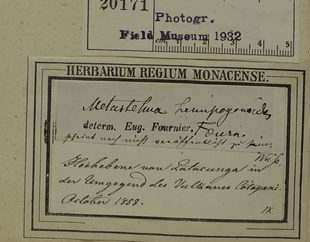 20171
Photogr.
Field Museum 1932
1 2 3 4 5
HERBARIUM REGIUM MONACENSE.
Metastelma hemipogonoides
determ. Eug. Fournier. Fourn.
scheint noch nicht veröffentlicht zu sein.
Hochebene von Latacunga in
der Umgegend des Vulkanes Cotopaxi.
October 1858.
IX